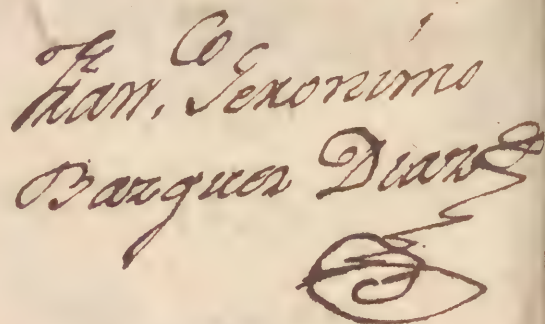 Fran.co Jeronimo
Bazquez Diaz